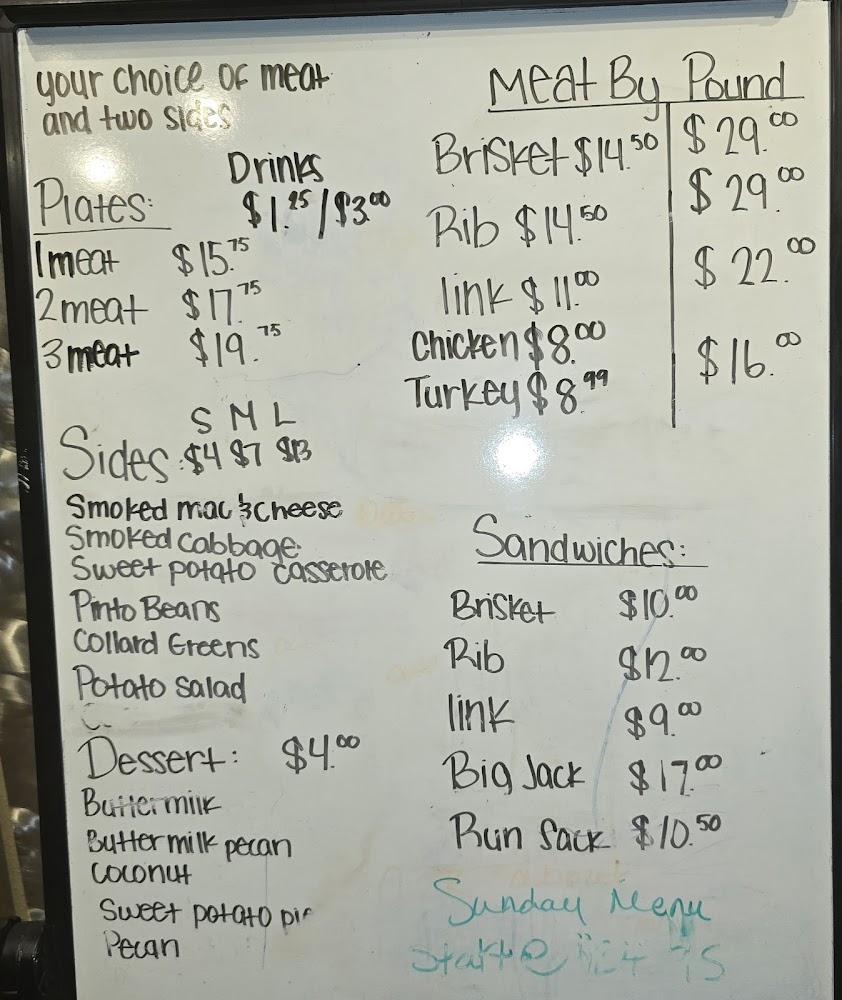 your choice of meat
and two sides
Drinks
$1.25/$3.00
Plates:
1 meat $15.75
2 meat $17.75
3 meat $19.75
S M L
Sides: $4 $7 $13
Smoked mac & cheese
Smoked Cabbage
Sweet potato casserole
Pinto Beans
Collard Greens
Potato salad
Dessert: $4.00
Buttermilk
Buttermilk pecan
Coconut
Sweet potato pie
Pecan
Meat By Pound
Brisket $14.50 $29.00
Rib $14.50 $29.00
link $11.00 $22.00
Chicken $8.00 $16.00
Turkey $8.99
Sandwiches:
Brisket $10.00
Rib $12.00
link $9.00
Big Jack $17.00
Run Sack $10.50
Sunday Menu